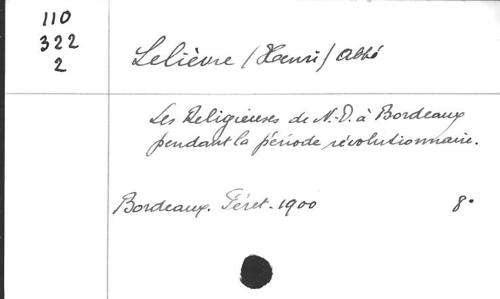 110
322
2
Lelièvre (Henri) Abbé
Les Religieuses de N.-D. à Bordeaux
pendant la période révolutionnaire.
Bordeaux. Féret. 1900 8°